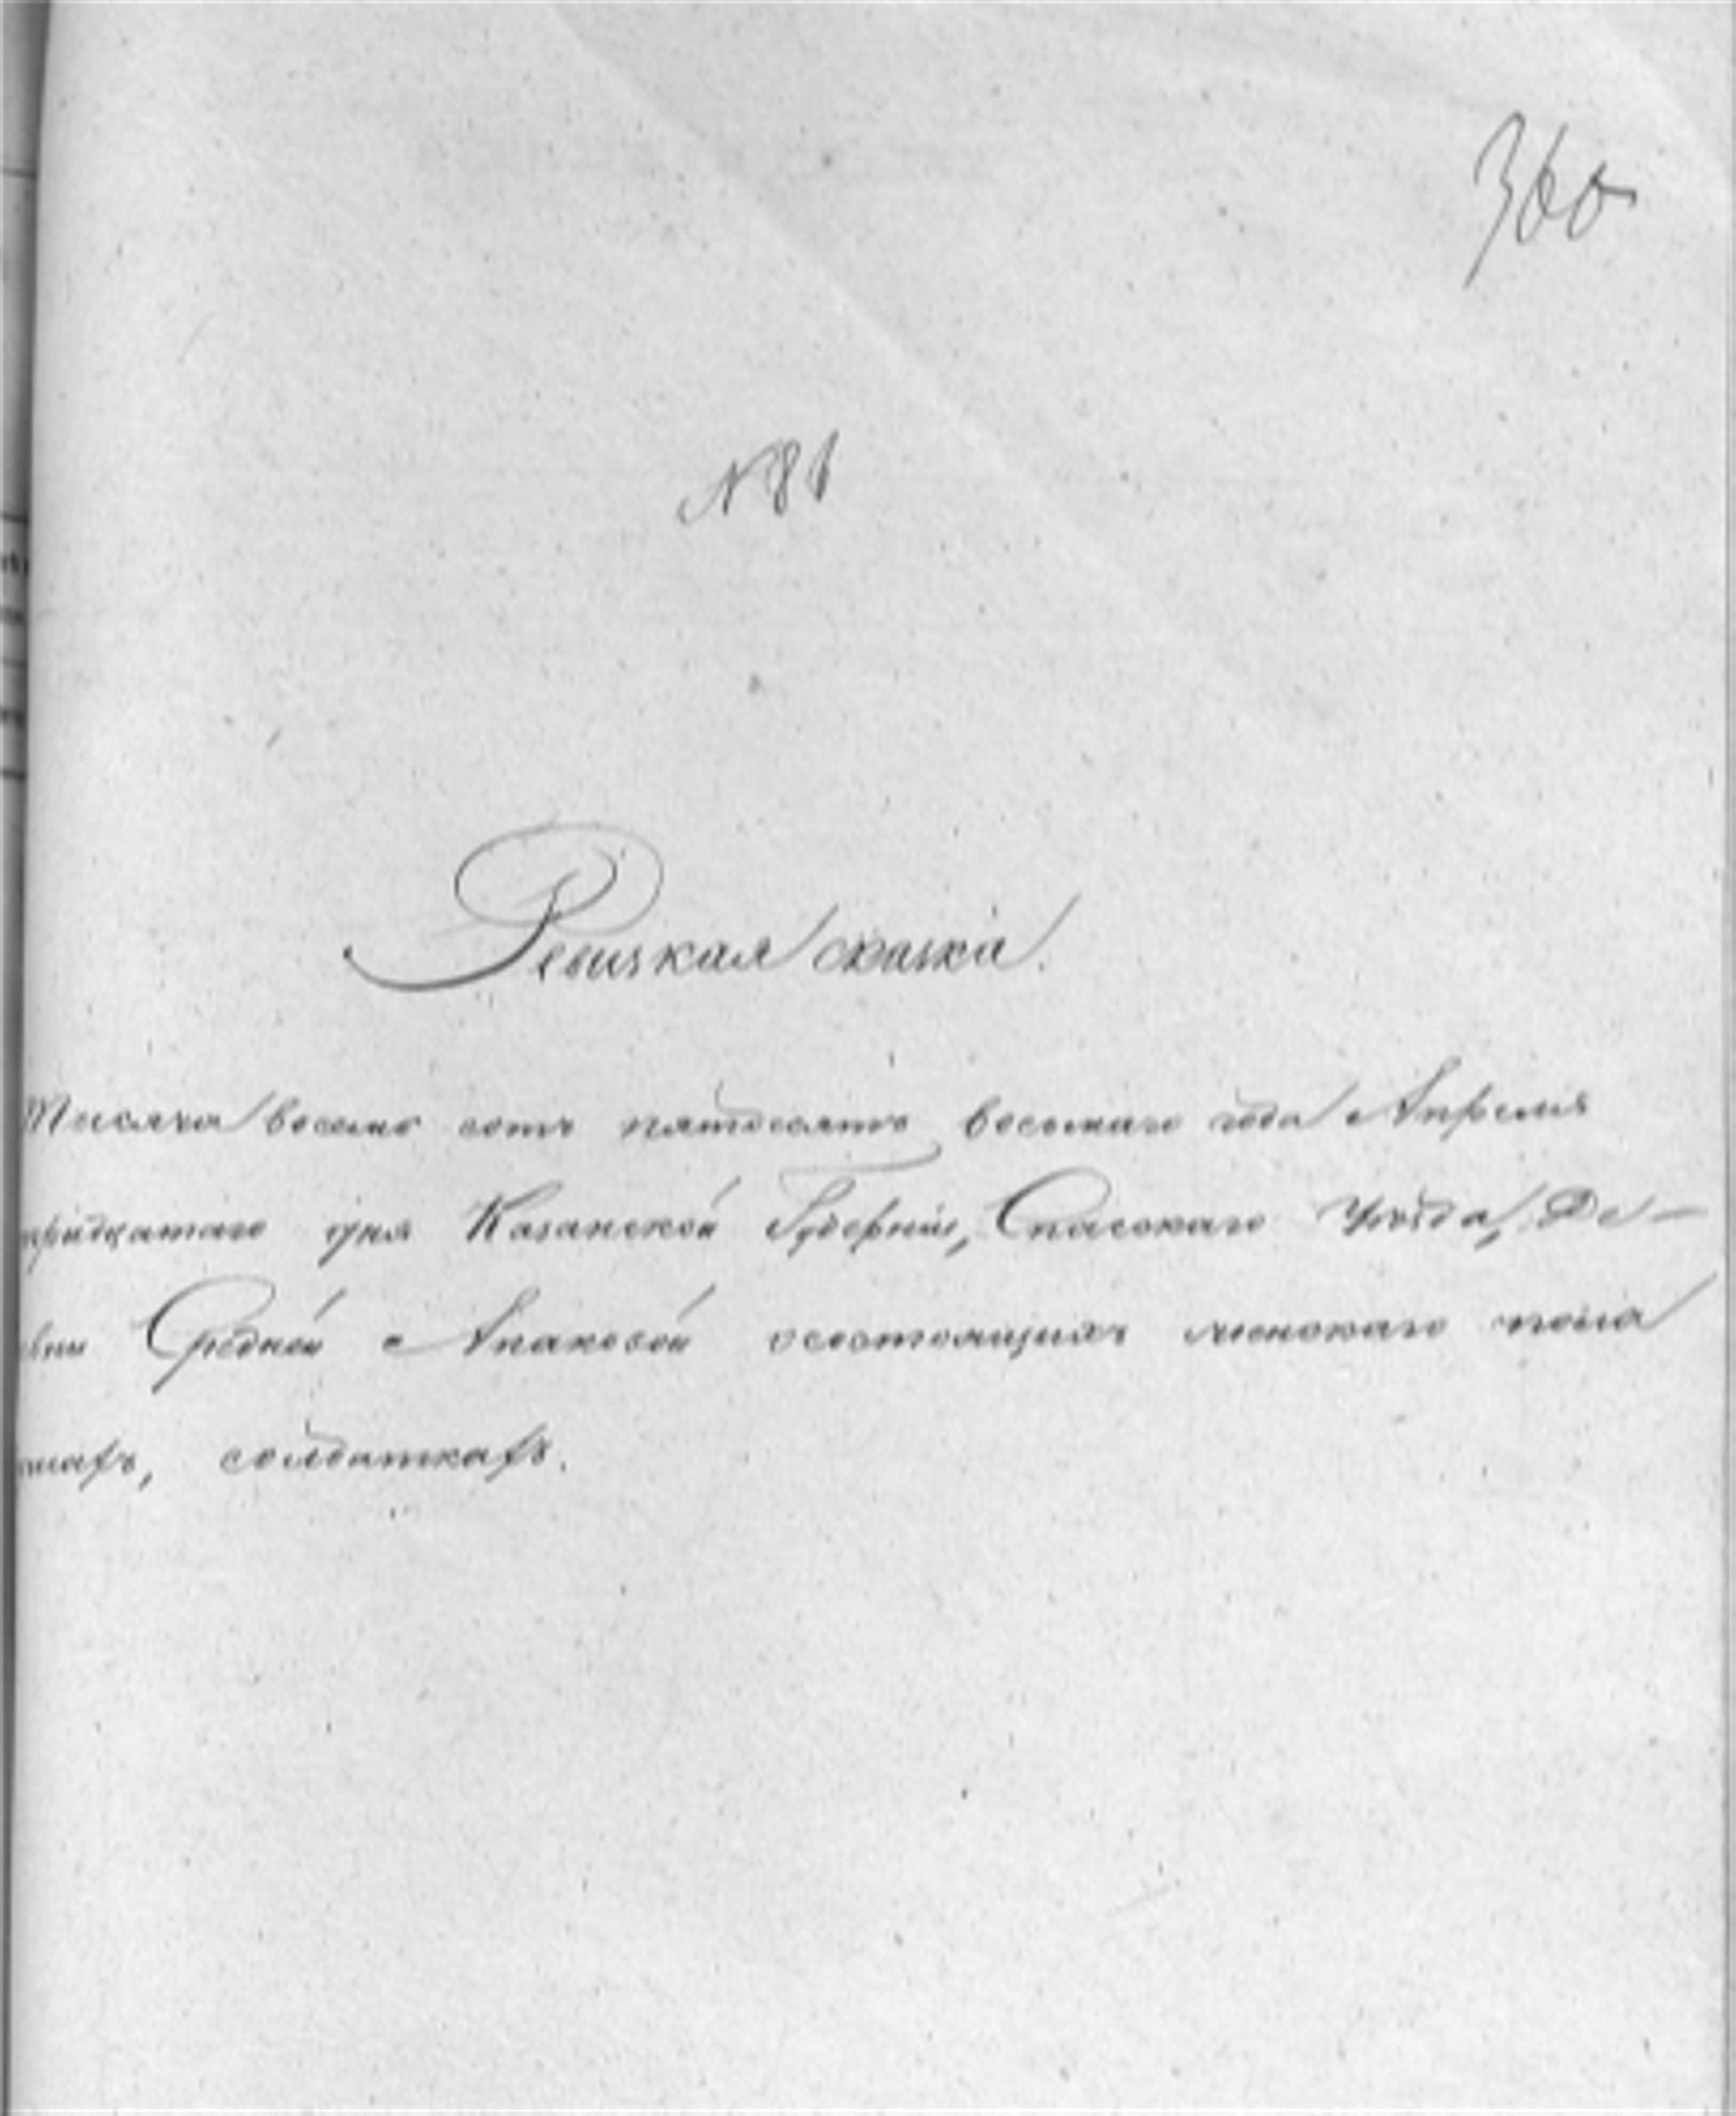 360
№ 81
Ревижская сказка.
Тысяча восемь сотъ пятдесятъ восьмаго года Апреля
тридцатаго дня Казанской Губерніи, Спасскаго Уѣзда, Де-
евни Средней Апаковой о состоящихъ женскаго пола
солдаткахъ.